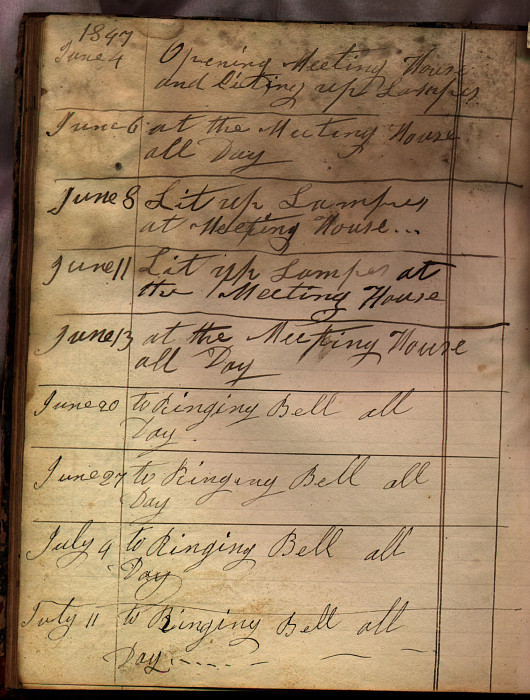 1847
June 4 Opening Meeting House
and Liting up Lampes
June 6 at the Meeting House
all Day
June 8 Lit up Lampes
at Meeting House...
June 11 Lit up Lampes at
the Meeting House
June 13 at the Meeting House
all Day
June 20 to Ringing Bell all
Day
June 27 to Ringing Bell all
Day
July 4 to Ringing Bell all
Day
July 11 to Ringing Bell all
Day